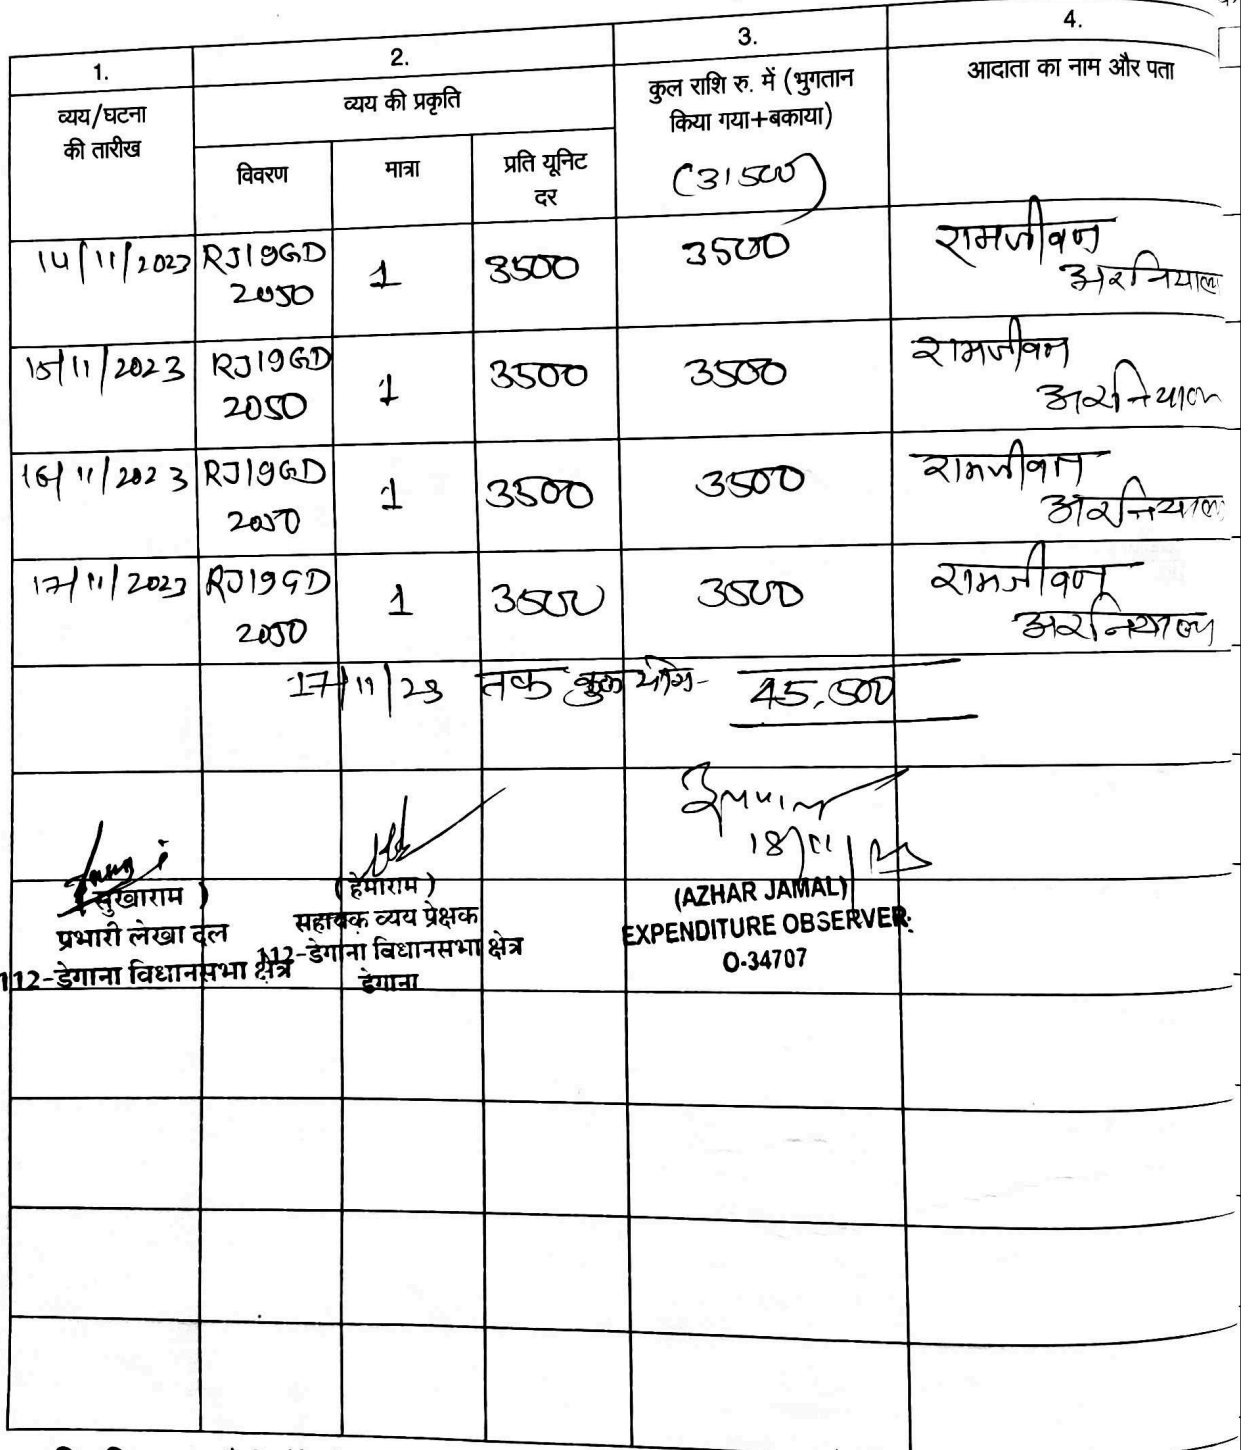 1.
2.
3.
4.
व्यय/घटना
की तारीख
व्यय की प्रकृति
कुल राशि रु. में (भुगतान
किया गया+बकाया)
आदाता का नाम और पता
विवरण
मात्रा
प्रति यूनिट
दर
(31500)
14/11/2023 RJ19GD 1 3500 3500 रामजीवण
2050 अरनियाला
15/11/2023 RJ19GD 1 3500 3500 रामजीवण
2050 अरनियाला
16/11/2023 RJ19GD 1 3500 3500 रामजीवण
2050 अरनियाला
17/11/2023 RJ19GD 1 3500 3500 रामजीवण
2050 अरनियाला
17/11/23 तक कुल योग- 45,500
18/11/23
(सुखाराम)
प्रभारी लेखा दल
112-डेगाना विधानसभा क्षेत्र
(हेमाराम)
सहायक व्यय प्रेक्षक
112-डेगाना विधानसभा क्षेत्र
डेगाना
(AZHAR JAMAL)
EXPENDITURE OBSERVER
O-34707